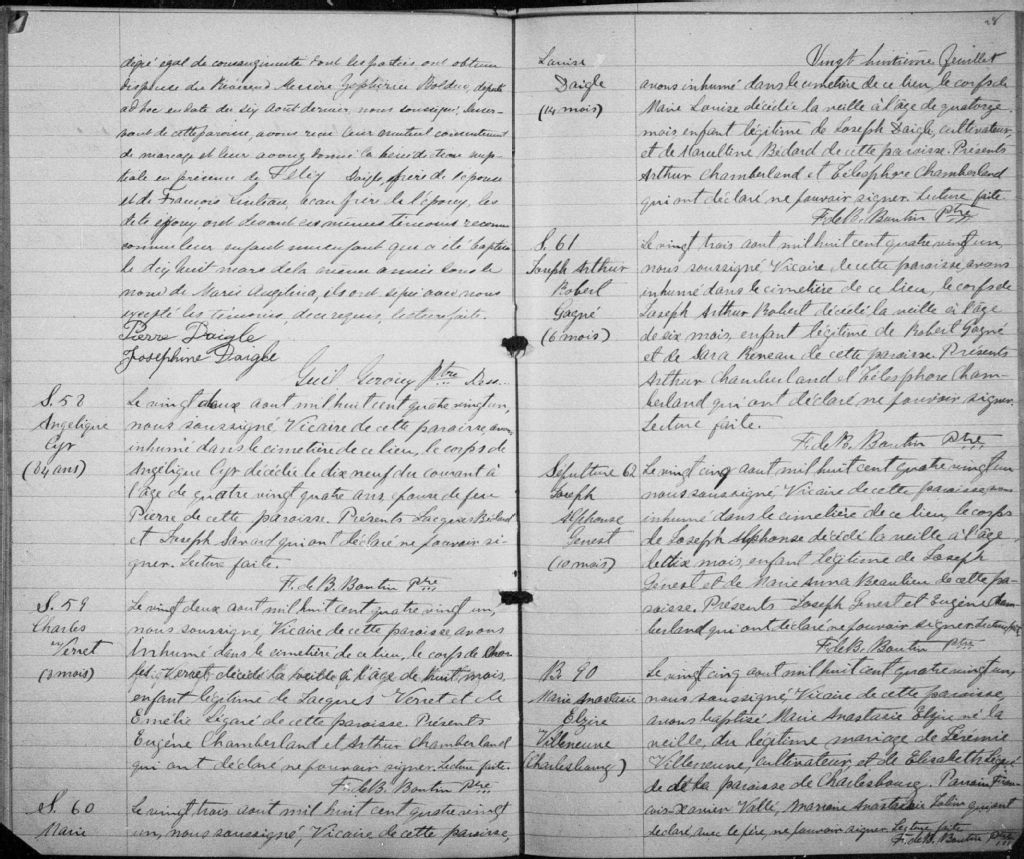 degré égal de consanguinité dont les parties ont obtenu
dispense du Révérend Messire Zéphirin Bolduc, député
ad hoc en date du six août dernier, nous soussigné, desser-
vant de cette paroisse, avons reçu leur mutuel consentement
de mariage et leur avons donné la bénédiction nup-
tiale en présence de Daigle, frère de l'épouse
et de François beau frère de l'époux, les
dits époux ont devant ces mêmes témoins reconnu
comme leur enfant un enfant qui a été baptisé
le dix huit mars de la même année sous le
nom de Marie ils ont signé avec nous
excepté les témoins, de ce requis, lecture faite.
Pierre Daigle
Joséphine Daigle
Guil. Ptre
S. 58
Angélique
Cyr
(84 ans)
Le vingt deux août mil huit cent quatre vingt un,
nous soussigné Vicaire de cette paroisse, avons
inhumé dans le cimetière de ce lieu, le corps de
Angélique Cyr décédée le dix neuf du courant à
l'âge de quatre vingt quatre ans, épouse de feu
Pierre de cette paroisse. Présents Jacques Bédard
et Joseph Savard qui ont déclaré ne pouvoir si-
gner. Lecture faite.
F. de B. Boutin Ptre
S. 59
Charles
Verret
mois)
Le vingt deux août mil huit cent quatre vingt un,
nous soussigné, Vicaire de cette paroisse avons
inhumé dans le cimetière de ce lieu, le corps de Char
les Verret décédé la veille à l'âge de huit mois,
enfant légitime de Jacques Verret et de
Emélie Légaré de cette paroisse. Présents
Eugène Chamberland et Arthur Chamberland
qui ont déclaré ne pouvoir signer. Lecture faite.
F. de B. Boutin Ptre
S. 60
Marie
Le vingt trois août mil huit cent quatre vingt
un, nous soussigné, Vicaire de cette paroisse,
Louise
Daigle
(14 mois)
Vingt huitième feuillet
avons inhumé dans le cimetière de ce lieu, le corps de
Marie Louise décédée la veille à l'âge de quatorze
mois enfant légitime de Joseph Daigle, cultivateur,
et de Marcelline Bédard de cette paroisse. Présents
Arthur Chamberland et Télesphore Chamberland
qui ont déclaré ne pouvoir signer. Lecture faite.
F. de B. Boutin Ptre
S. 61
Joseph Arthur
Robert
Gagné
(6 mois)
Le vingt trois août mil huit cent quatre vingt un,
nous soussigné Vicaire de cette paroisse, avons
inhumé dans le cimetière de ce lieu, le corps de
Joseph Arthur Robert décédé la veille à l'âge
de six mois, enfant légitime de Robert Gagné
et de Reneau de cette paroisse. Présents
Arthur Chamberland et Télesphore Cham-
berland qui ont déclaré ne pouvoir signer.
Lecture faite.
F. de B. Boutin Ptre
Sépulture 62
Joseph
Alphonse
Genest
(10 mois)
Le vingt cinq août mil huit cent quatre vingt un
nous soussigné, Vicaire de cette paroisse, avons
inhumé dans le cimetière de ce lieu, le corps
de Joseph Alphonse décédé la veille à l'âge
de dix mois, enfant légitime de Joseph
Genest et de Marie Anna Beaulieu de cette pa-
roisse. Présents Joseph Genest et Eugène Cham
berland qui ont déclaré ne pouvoir signer. Lecture faite
F. de B. Boutin Ptre
B. 90
Marie Anastasie
Elzire
Villeneuve
(Charlesbourg)
Le vingt cinq août mil huit cent quatre vingt un,
nous soussigné, Vicaire de cette paroisse,
avons baptisé Marie Anastasie Elzire né la
veille, du légitime mariage de Jérémie
Villeneuve, cultivateur, et de Elisabeth Légaré
de de la paroisse de Charlesbourg. Parrain Fran-
çois Xavier Vallé, Marraine Anastasie qui ont
déclaré, avec le père, ne pouvoir signer. Lecture faite
F. de B. Boutin Ptre